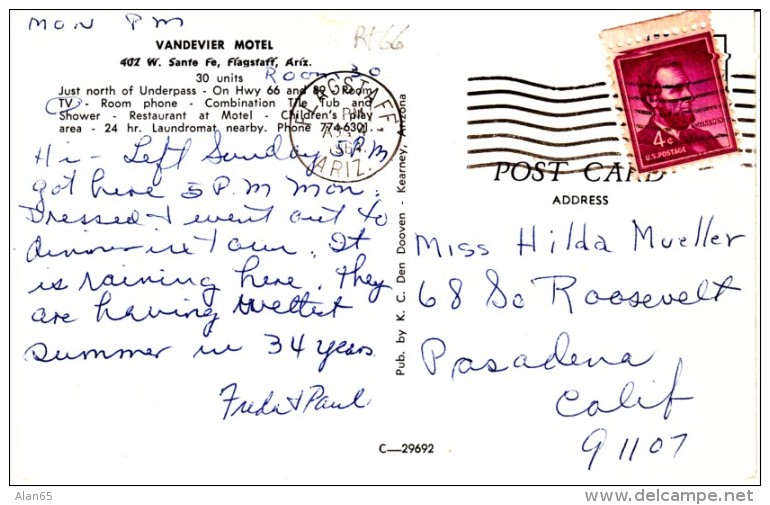 MON PM
Rt 66
VANDEVIER MOTEL
402 W. Santa Fe, Flagstaff, Ariz.
30 units
Room 30
Just north of Underpass - On Hwy 66 and 89 - Room
TV - Room phone - Combination Tile Tub and
Shower - Restaurant at Motel - Children's play
area - 24 hr. Laundromat nearby. Phone 774-6301
FLAGSTAFF
PM
ARIZ.
Hi - Left Sunday 5 P.M
got here 5 P.M Mon.
Dressed & went out to
dinner in town. It
is raining here. They
are having wettest
summer in 34 years.
Freda & Paul
Pub. by K. C. Den Dooven - Kearney, Arizona
C—29692
LINCOLN
4¢
U.S. POSTAGE
POST CARD
ADDRESS
Miss Hilda Mueller
68 So Roosevelt
Pasadena
Calif
91107
Alan65
delcampe.net